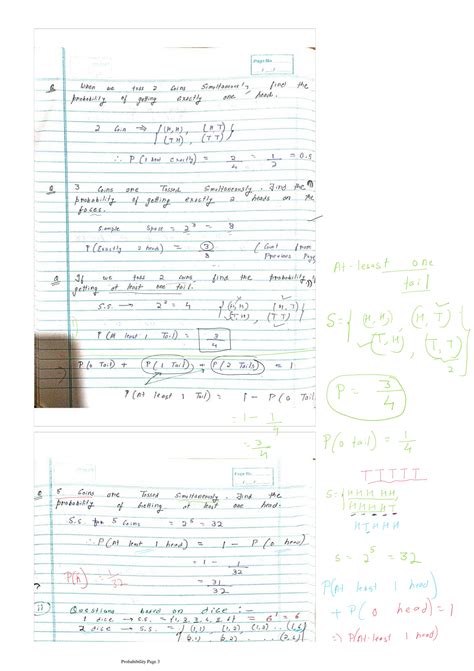 Page No.
Q When we toss 2 Coins Simultaneously, find the
probability of getting exactly one head.
2 Coin → {(H,H), (H T)
(T H), (T T)}
∴ P(1 head exactly) = 2/4 = 1/2 = 0.5
Q 3 Coins are Tossed Simultaneously. Find the
probability of getting exactly 2 heads on the
faces.
Sample Space = 2³ = 8
P(Exactly 2 heads) = 3/8 (Cont from
Previous Page
Q If we toss 2 coins, find the probability
getting at least one tail.
S.S. → 2² = 4 {(H,H) (H,T)
(T H) (T T)}
P(At least 1 Tail) = 3/4
P(0 Tail) + P(1 Tail) + P(2 Tails) = 1
P(At least 1 Tail) = 1 - P(0 Tail
= 1 - 1/4
= 3/4
At-least one
tail
S = {(H,H), (H,T)
(T,H), (T,T)}
2
P = 3/4
P(0 tail) = 1/4
Page No.
Q 5 Coins are Tossed Simultaneously. Find the
probability of getting at least one head.
S.S. for 5 Coins = 2⁵ = 32
∴ P(At least 1 head) = 1 - P(0 head)
= 1 - 1/32
= 31/32
P(A) = 1/32
Questions based on dice :-
1 dice → S.S. = {1, 2, 3, 4, 5, 6} = 6¹ = 6
2 dice → S.S. = {(1,1) (1,2) (1,3) (1,6)
TTTTT
S = {HHHHH
HHHHT
HTHHH
S = 2⁵ = 32
P(At least 1 head)
+ P(0 head) = 1
⇒ P(At-least 1 head)
Probability Page 3